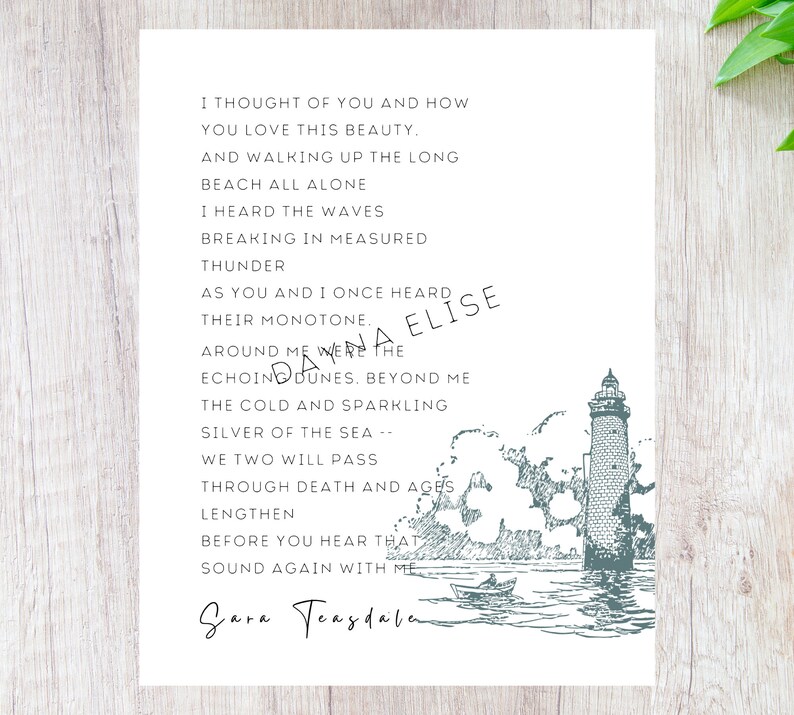 I THOUGHT OF YOU AND HOW
YOU LOVE THIS BEAUTY,
AND WALKING UP THE LONG
BEACH ALL ALONE
I HEARD THE WAVES
BREAKING IN MEASURED
THUNDER
AS YOU AND I ONCE HEARD
THEIR MONOTONE.
AROUND ME WERE THE
ECHOING DUNES, BEYOND ME
THE COLD AND SPARKLING
SILVER OF THE SEA --
WE TWO WILL PASS
THROUGH DEATH AND AGES
LENGTHEN
BEFORE YOU HEAR THAT
SOUND AGAIN WITH ME.
Sara Teasdale
DAYNA ELISE